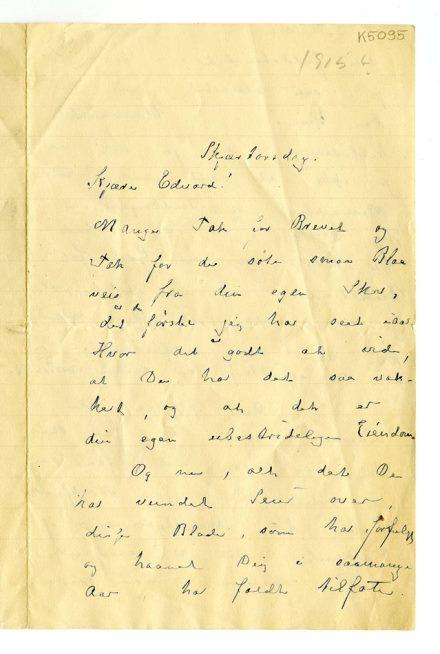 K5095
1915 ?
Skjærtorsdag.
Kjære Edvard!
Mange Tak for Brevet og
Tak for de søte smaa Blaa
veis fra din egen Skov,
det er de første jeg har seet iaar.
Hvor det er godt at vide,
at De har det saa vak-
kert, og at det er
din egen ubestridelige Eiendom
Og nu, alt dette De
har vundet Seier over
disse Blade, som har forfulgt
og haanet Dig i saamange
Aar har faldt tilføie.